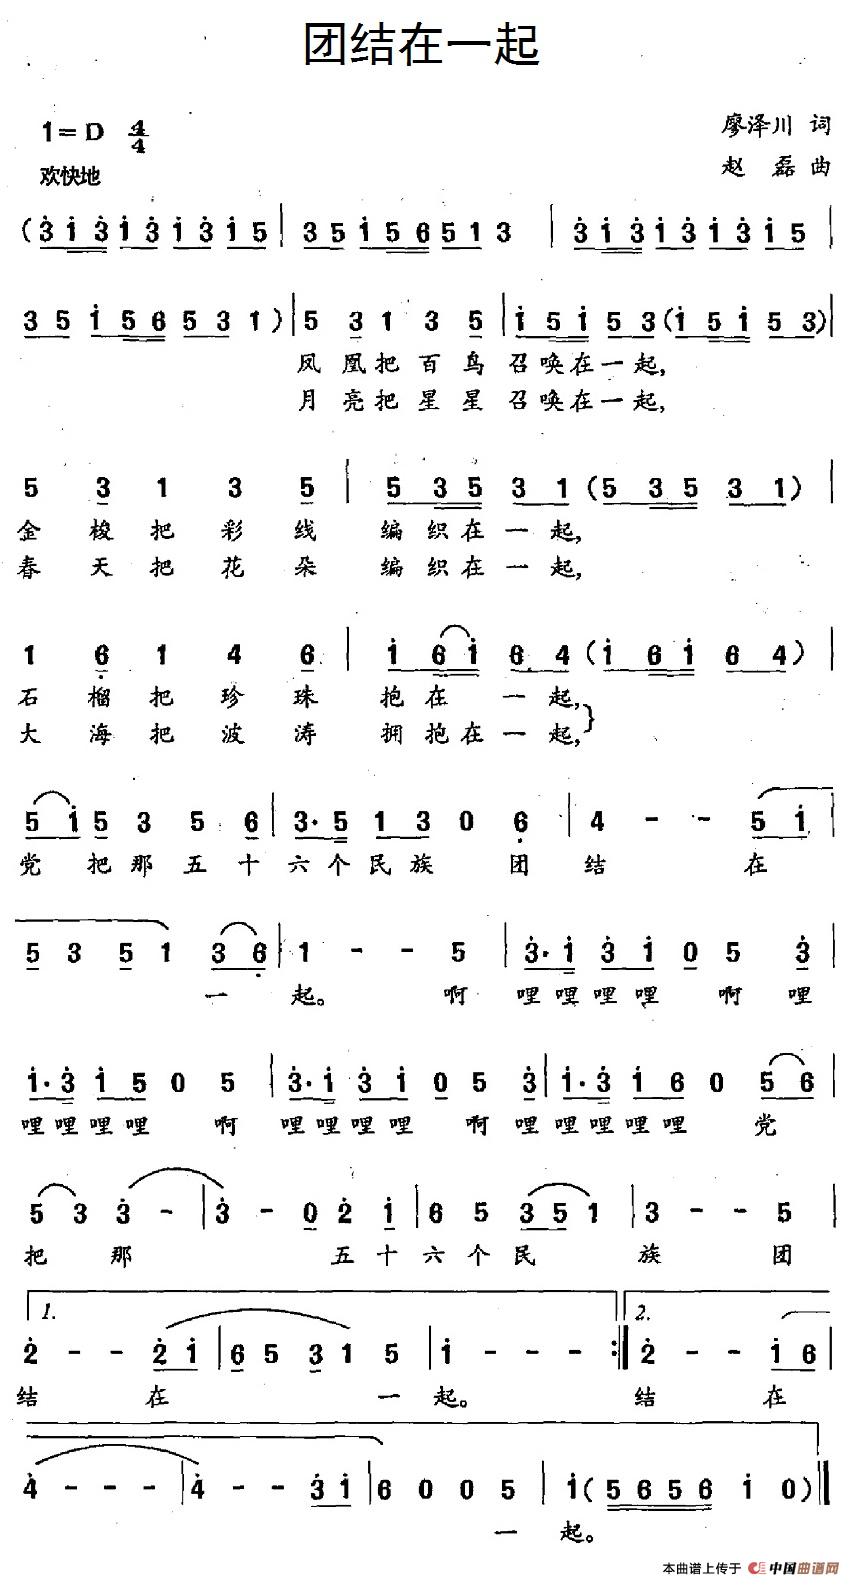 团结在一起
1=D 4/4
廖泽川 词
欢快地
赵磊 曲
(3 1 3 1 3 1 3 1 5 | 3 5 1 5 6 5 1 3 | 3 1 3 1 3 1 3 1 5 |
3 5 1 5 6 5 3 1) | 5 3 1 3 5 | 1 5 1 5 3 (1 5 1 5 3) |
凤凰把百鸟召唤在一起,
月亮把星星召唤在一起,
5 3 1 3 5 | 5 3 5 3 1 (5 3 5 3 1) |
金梭把彩线编织在一起,
春天把花朵编织在一起,
1 6 1 4 6 | 1 6 1 6 4 (1 6 1 6 4) |
石榴把珍珠抱在一起,
大海把波涛拥抱在一起,
5 1 5 3 5 6 | 3· 5 1 3 0 6 | 4 - - 5 1 |
党把那五十六个民族团结在
5 3 5 1 3 6 | 1 - - 5 | 3· 1 3 1 0 5 3 |
一起。啊哩哩哩哩啊哩
1· 3 1 5 0 5 | 3· 1 3 1 0 5 3 | 1· 3 1 6 0 5 6 |
哩哩哩哩啊哩哩哩哩啊哩哩哩哩哩党
5 3 3 - | 3 - 0 2 1 | 6 5 3 5 1 | 3 - - 5 |
把那五十六个民族团
1. 2.
2 - - 2 1 | 6 5 3 1 5 | 1 - - - :| 2 - - 1 6 |
结在一起。结在
4 - - - | 4 - - 3 1 | 6 0 0 5 | 1 (5 6 5 6 1 0) ||
一起。
本曲谱上传于 中国曲谱网